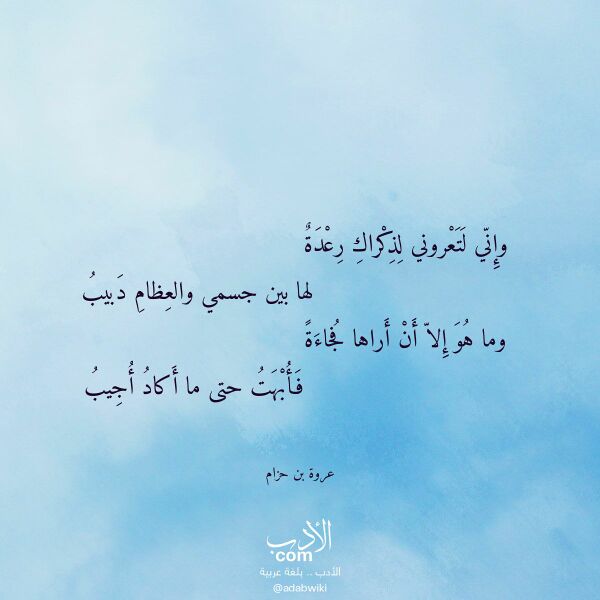 وإِنّي لَتَعْروني لِذِكْراكِ رِعْدَةٌ
لها بين جسمي والعِظامِ دَبيبُ
وما هُوَ إِلاّ أَنْ أَراها فُجاءَةً
فَأُبْهَتُ حتى ما أَكادُ أُجِيبُ
عروة بن حزام
الأدب
com
الأدب .. بلغة عربية
@adabwiki